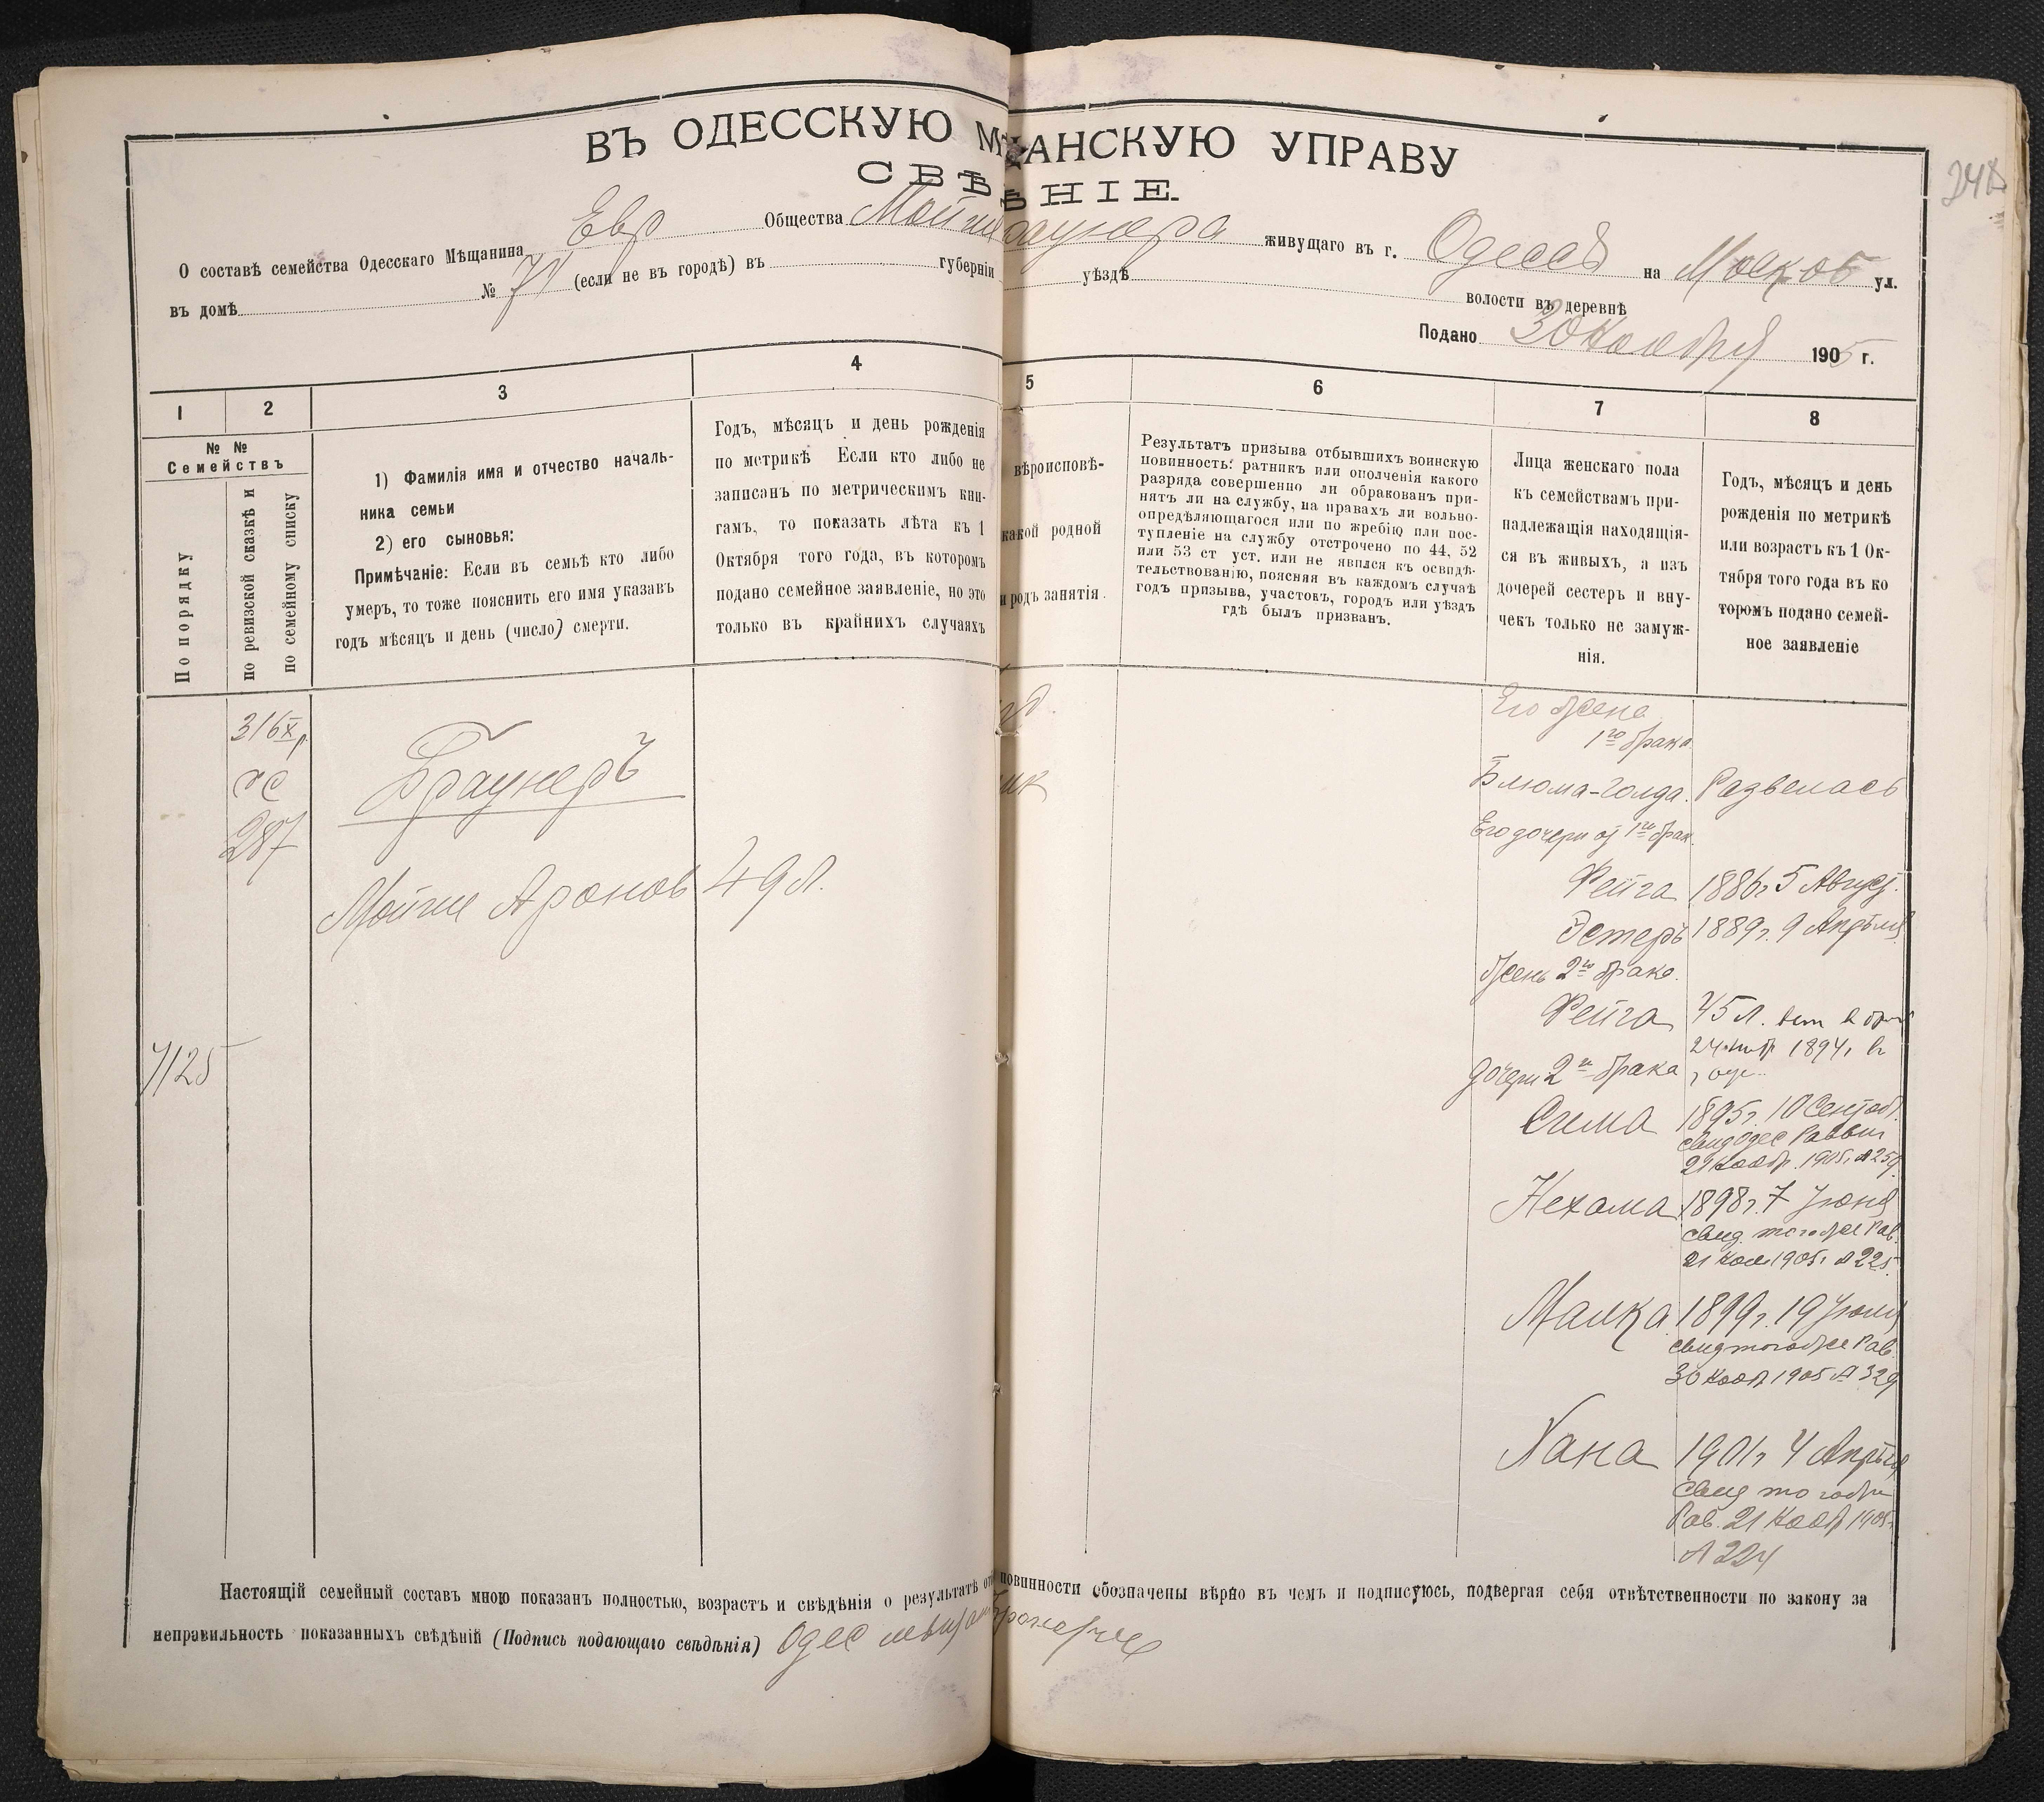 ВЪ ОДЕССКУЮ М АНСКУЮ УПРАВУ
СВѢ НІЕ.
248
О составѣ семейства Одесскаго Мѣщанина Евр Общества Мойши Браунера живущаго въ г. Одессѣ на Москов ул.
въ домѣ № 71 (если не въ городѣ) въ губерніи уѣздѣ волости въ деревнѣ
Подано 30 Ноября 1905 г.
1 2 3 4 5 6 7 8
№ №
Семействъ
По порядку
по ревизской сказкѣ и
по семейному списку
1) Фамилія имя и отчество началь-
ника семьи
2) его сыновья:
Примѣчаніе: Если въ семьѣ кто либо
умеръ, то тоже пояснить его имя указавъ
годъ мѣсяцъ и день (число) смерти.
Годъ, мѣсяцъ и день рожденія
по метрикѣ Если кто либо не
записанъ по метрическимъ кни-
гамъ, то показать лѣта къ 1
Октября того года, въ которомъ
подано семейное заявленіе, но это
только въ крайнихъ случаяхъ
вѣроисповѣ-
какой родной
и родъ занятія.
Результатъ призыва отбывшихъ воинскую
повинность: ратникъ или ополченія какого
разряда совершенно ли обракованъ при-
нятъ ли на службу, на правахъ ли вольно-
опредѣляющагося или по жребію или пос-
тупленіе на службу отстрочено по 44, 52
или 53 ст уст. или не явился къ освидѣ-
тельствованію, поясняя въ каждомъ случаѣ
годъ призыва, участокъ, городъ или уѣздъ
гдѣ былъ призванъ.
Лица женскаго пола
къ семействамъ при-
надлежащія находящія-
ся въ живыхъ, а изъ
дочерей сестеръ и вну-
чекъ только не замуж-
нія.
Годъ, мѣсяцъ и день
рожденія по метрикѣ
или возрастъ къ 1 Ок-
тября того года въ ко
торомъ подано семей-
ное заявленіе
7125
316 X р.
рс
287
Браунеръ
Мойше Аронов 49 л.
ик
Его жена
1го брака
Блюма-Голда. Развелась
Его дочери от 1го брак.
Фейга 1886 г. 5 Август.
Эстеръ 1889 г. 9 Апрѣля
жень 2го брака.
Фейга 45 л. вст в бр
24 1894 г. в
дочери 2го брака г. Оде
Сима 1895 г. 10 Сентяб.
свид Одес Раввин
21 Нояб. 1905 г. № 259
Нехама 1898 г. 7 Іюня
свид. того же Рав.
21 Ноя 1905 г. № 225.
Малка 1899 г. 19 Іюля
свид того же Рав.
30 Нояб 1905 № 329
Хана 1901 г. 4 Апрѣля
свид того же
Рав. 21 Нояб 1905 г.
№ 224
Настоящій семейный составъ мною показанъ полностью, возрастъ и свѣдѣнія о результатѣ от повинности обозначены вѣрно въ чемъ и подписуюсь, подвергая себя отвѣтственности по закону за
неправильность показанныхъ свѣдѣній (Подпись подающаго свѣдѣнія) Одес